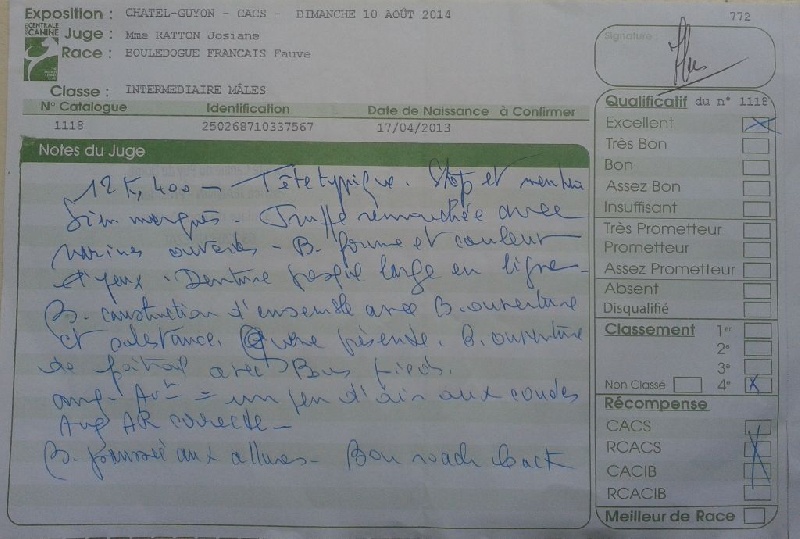 Exposition : CHATEL-GUYON - CACS - DIMANCHE 10 AOÛT 2014
772
CENTRALE CANINE
Juge : Mme RATTON Josiane
Race : BOULEDOGUE FRANCAIS Fauve
Signature :
Classe : INTERMEDIAIRE MÂLES
N° Catalogue Identification Date de Naissance à Confirmer
1118 250268710337567 17/04/2013
Notes du Juge
12 K, 400 — Tête typique. Stop et menton
bien marqués - Truffe remouchée avec
narines ouvertes - B. forme et couleur
d'yeux. Denture large en ligne -
B. construction d'ensemble avec B. ouverture
et substance. Queue présente. B. ouverture
de poitrail avec Bons pieds.
ang. Avt = un peu d'air aux coudes
Ang AR correcte -
B. aux allures - Bon roach back
Qualificatif du n° 1118
Excellent
Très Bon
Bon
Assez Bon
Insuffisant
Très Prometteur
Prometteur
Assez Prometteur
Absent
Disqualifié
Classement 1er
2e
3e
Non Classé 4e
Récompense
CACS
RCACS
CACIB
RCACIB
Meilleur de Race